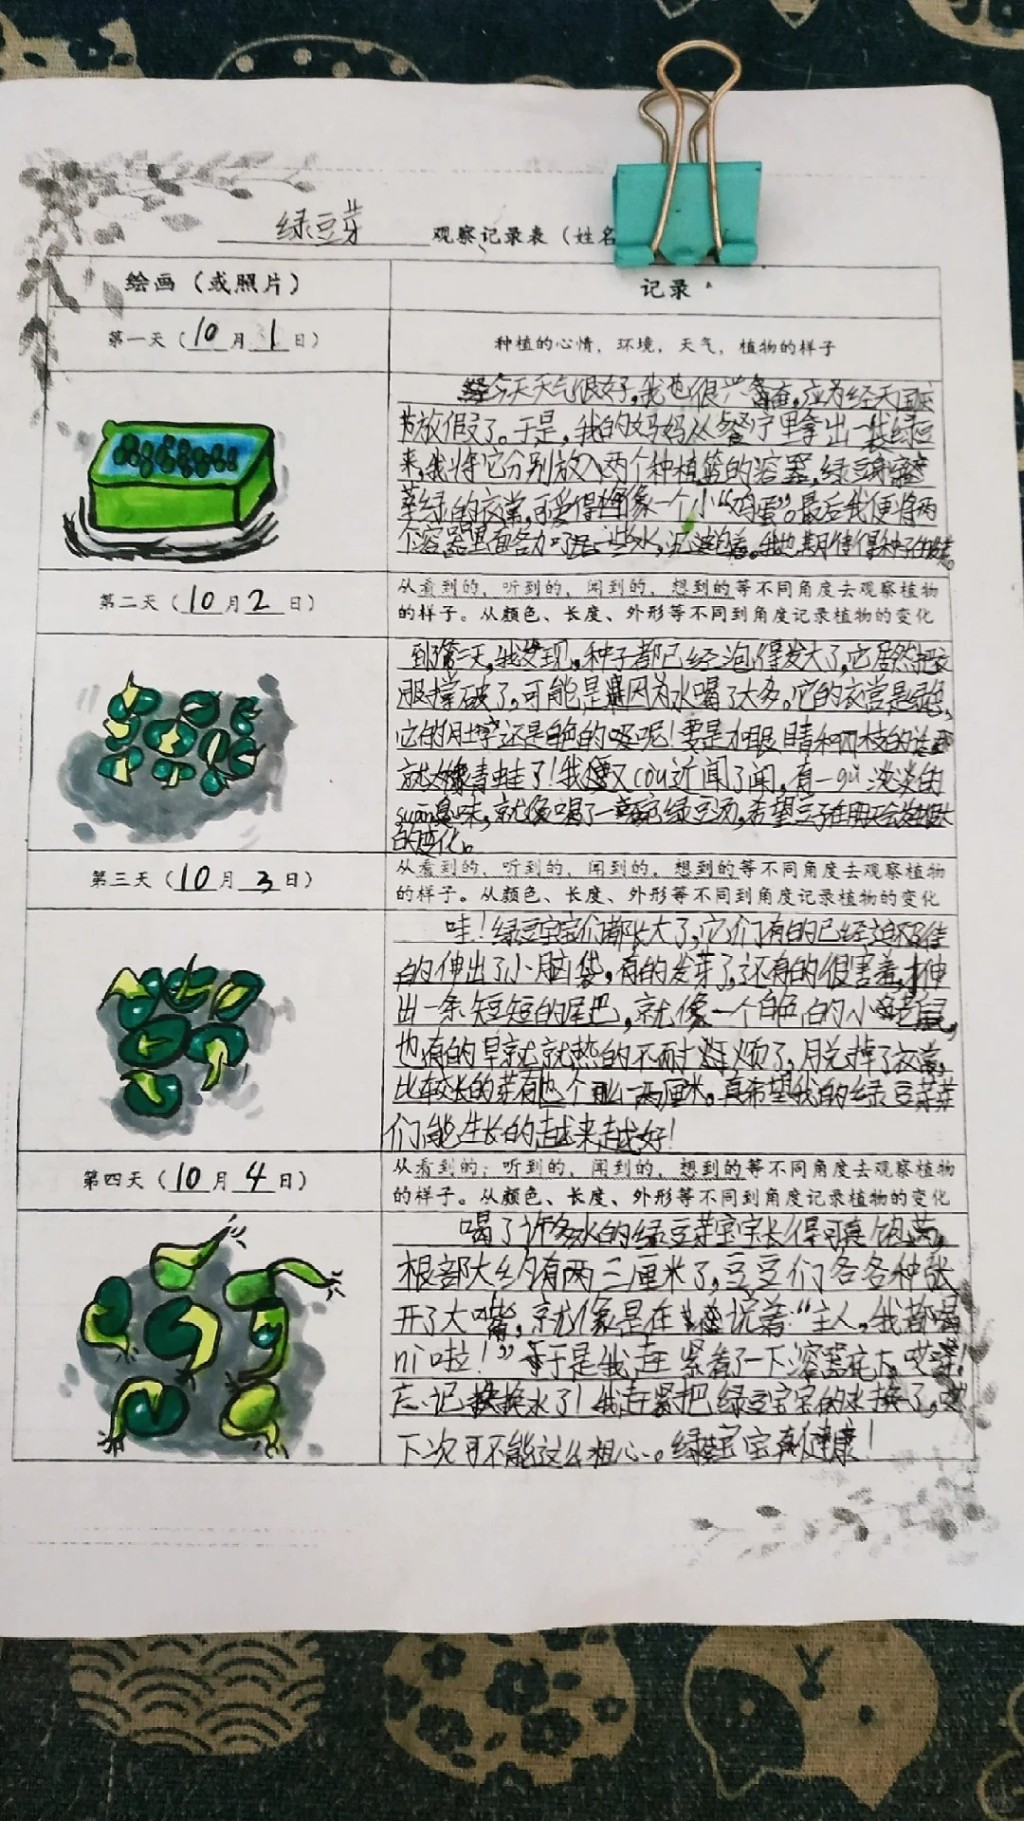 绿豆芽 观察记录表（姓名
绘画（或照片）
记录
第一天（10月1日）
种植的心情，环境，天气，植物的样子
今天天气很好，我也很兴奋，应为经天国庆
节放假了。于是，我的妈妈从餐厅里拿出一袋绿豆
来，我将它分别放入两个种植篮的容器，绿豆
草绿的衣常，可爱得像一个小“鸡蛋”。最后我便将两
个容器里面各加了一些水，我也期待得种子的发
第二天（10月2日）
从看到的，听到的，闻到的，想到的等不同角度去观察植物
的样子。从颜色、长度、外形等不同到角度记录植物的变化
到第二天，我发现，种子都已经泡得发大了，它居然把衣
服撑破了。可能是因为水喝了太多。它的衣常是绿色，
它的肚子还是白色的呢！要是加眼睛和四枝的话
就像青蛙了！我又cou近闻了闻，有一gu淡淡的
味，就像喝了一碗绿豆汤，希望豆子在明天会
的变化。
第三天（10月3日）
从看到的，听到的，闻到的，想到的等不同角度去观察植物
的样子。从颜色、长度、外形等不同到角度记录植物的变化
哇！绿豆宝宝们都长大了，它们有的已经迫不及待
的伸出了小脑袋，有的发芽了，还有的很害羞，才伸
出一条短短的尾巴，就像一个白色的小老鼠，
也有的早就就热的不耐烦了，脱掉了衣常，
比较长的芽有一两厘米。真希望我的绿豆芽芽
们能生长的越来越好！
第四天（10月4日）
从看到的，听到的，闻到的，想到的等不同角度去观察植物
的样子。从颜色、长度、外形等不同到角度记录植物的变化
喝了许多水的绿豆芽宝宝长得可真饱满，
根部大约有两三厘米了，豆豆们各各种张
开了大嘴，就像是在说着：“主人，我都喝
ni啦！”于是我赶紧看了一下容器底下，哎呀，
忘记换水了！我赶紧把绿豆宝宝的水换了，
下次可不能这么粗心。绿豆宝宝真健康！